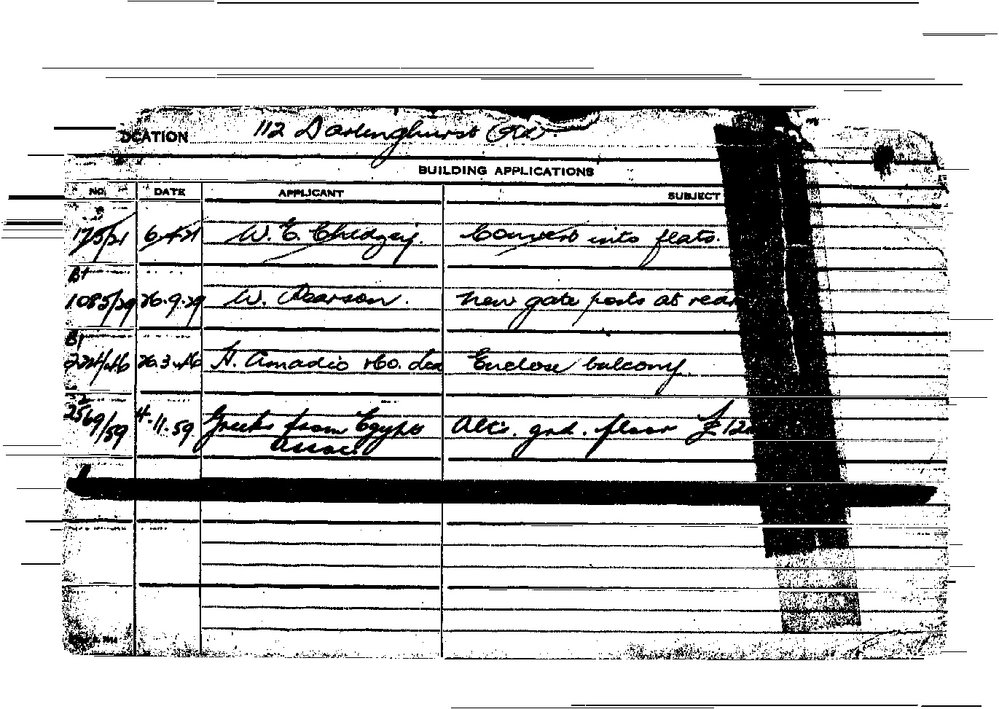 OCATION 112 Darlinghurst Rd
BUILDING APPLICATIONS
NO. DATE APPLICANT SUBJECT
175/21 6.4.21 W. E. Chidzey. Convert into flats.
B1
1085/29 26.9.29 W. Pearson. New gate posts at rear
B1
224/46 26.3.46 H. Amadio &Co. Enclose balcony.
2569/59 4.11.59 Greeks from Egypt Alts. grd. floor £12
Assoc.